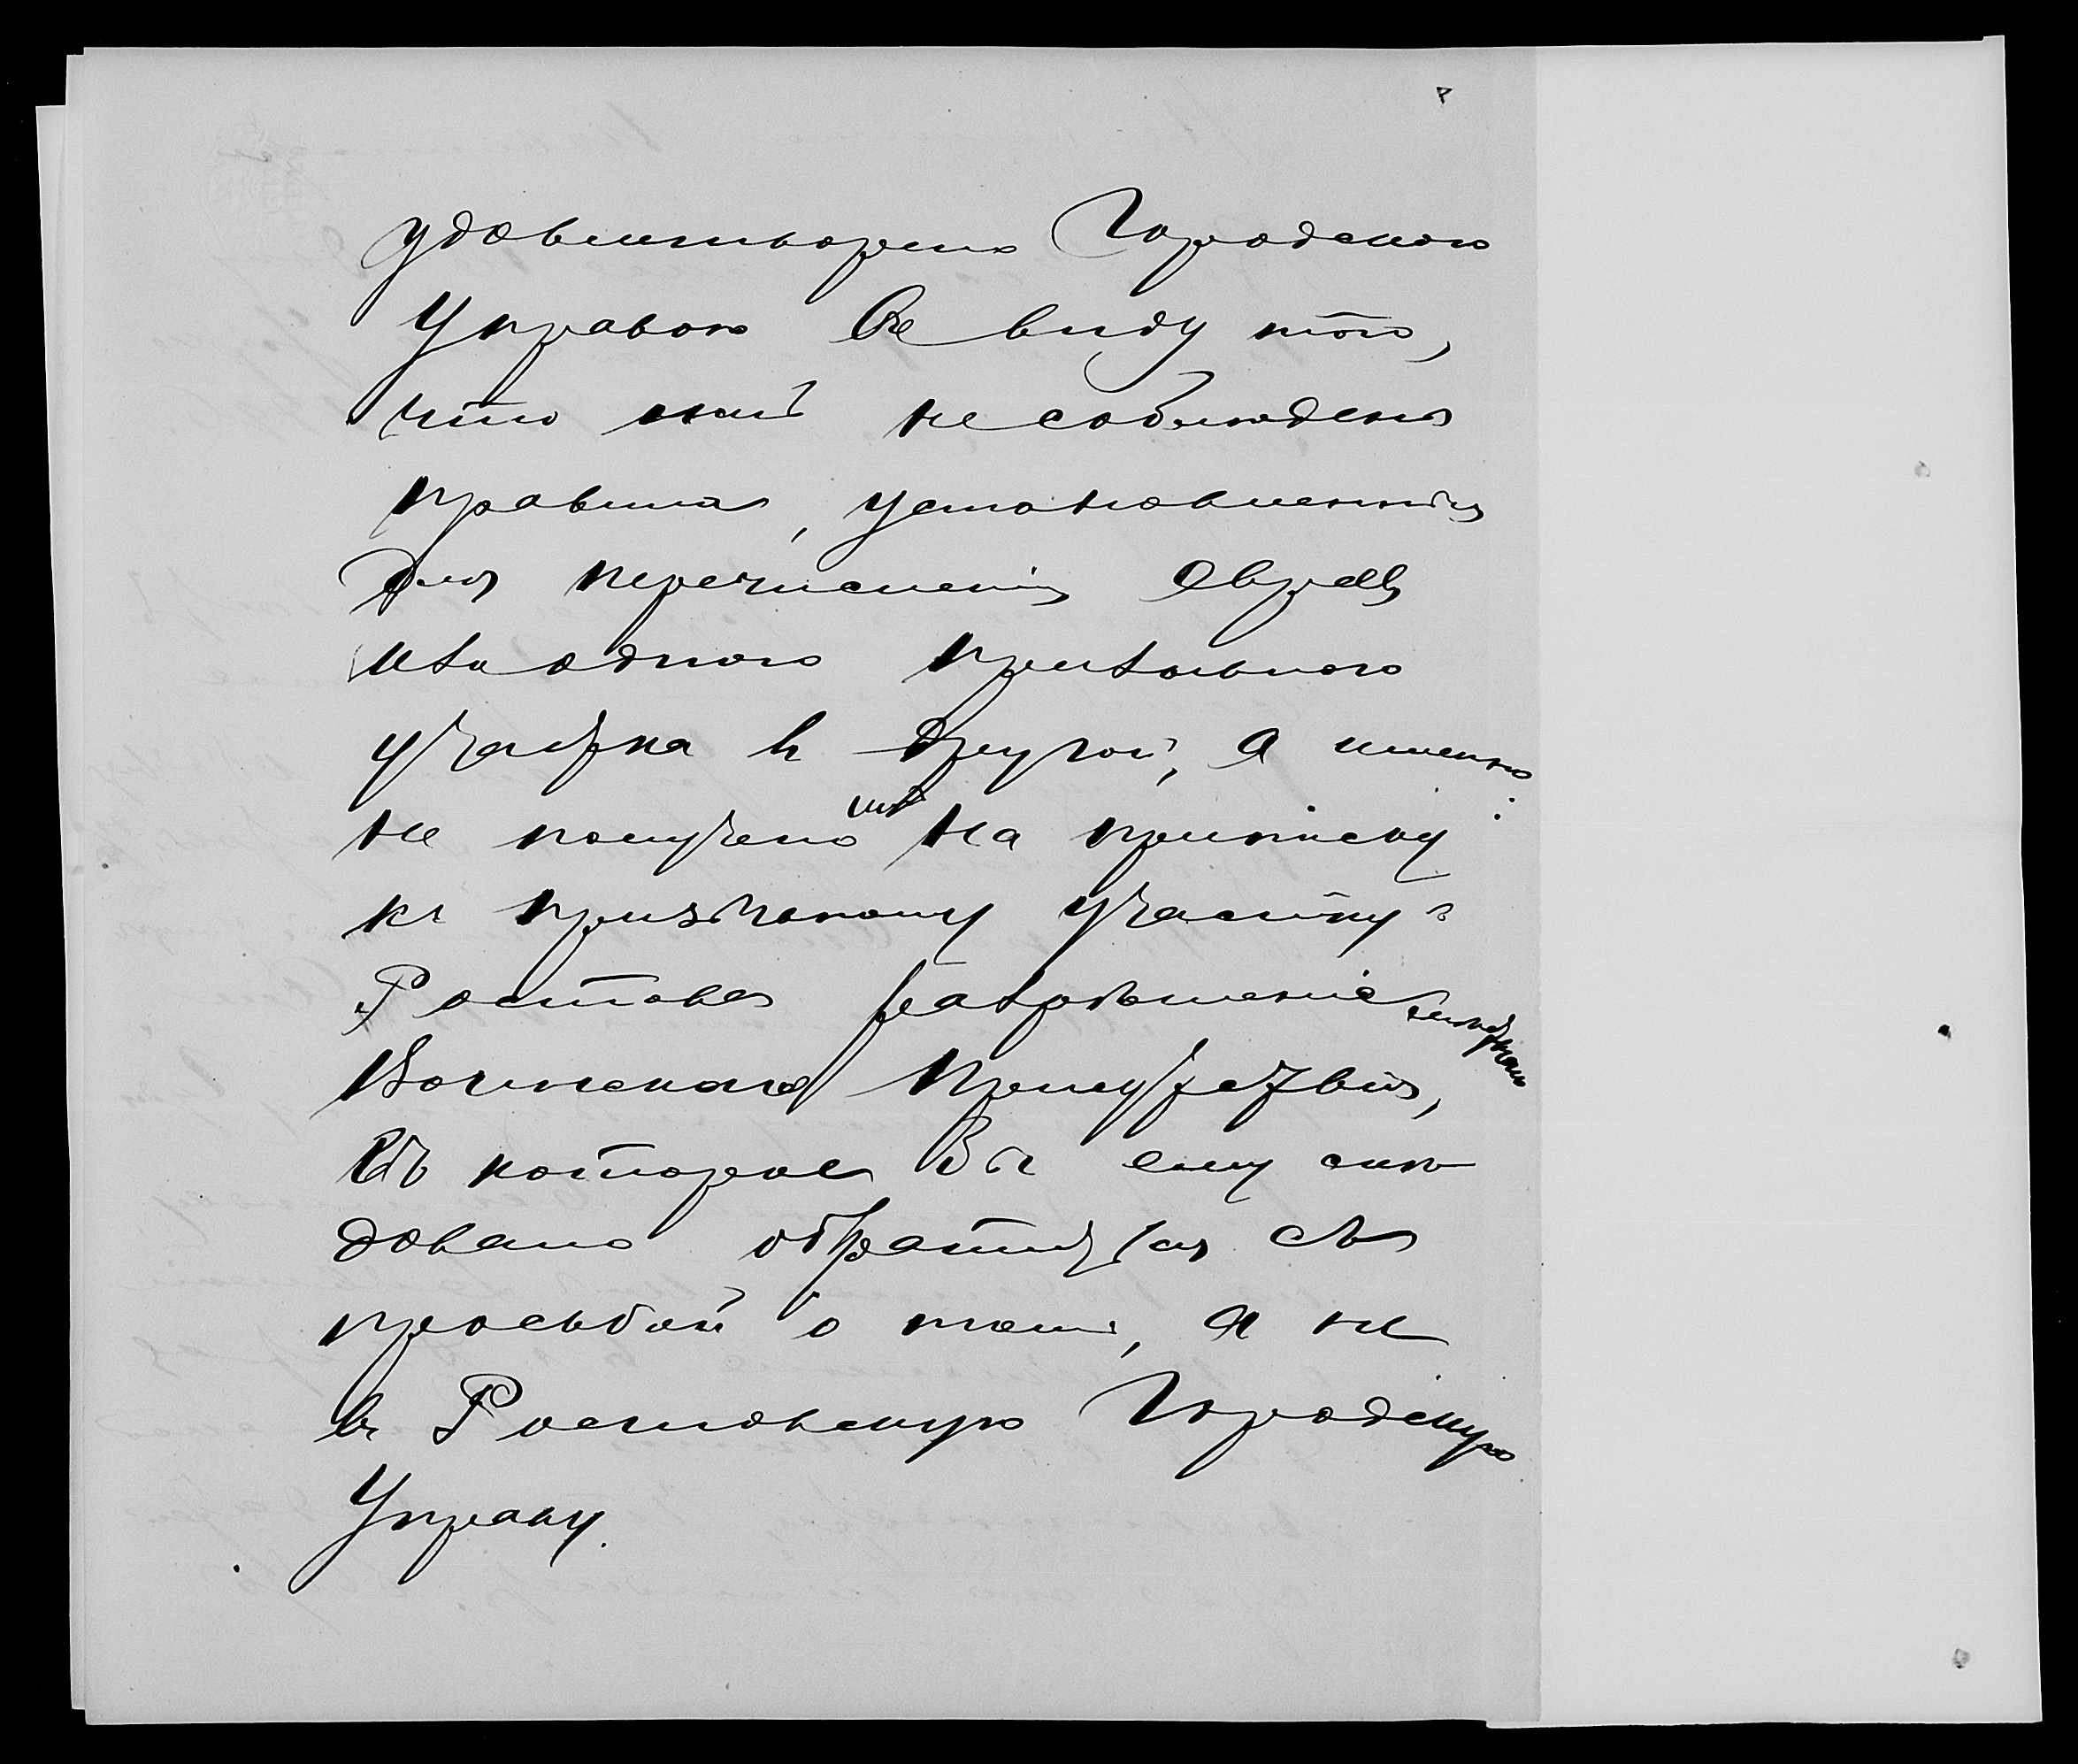 удовлетворено Городскою
Управою въ виду того,
что имъ не соблюдены
правила, установленныя
для перечисленія Евреевъ
изъ одного призывного
участка въ другой, а именно:
не получено имъ на приписку
къ призывному участку г.
Ростова разрѣшенія
Воинскаго Присутствія,
въ которое Бы ему слѣ
довало обратиться съ
просьбой о томъ, а не
въ Ростовскую Городскую
Управу.